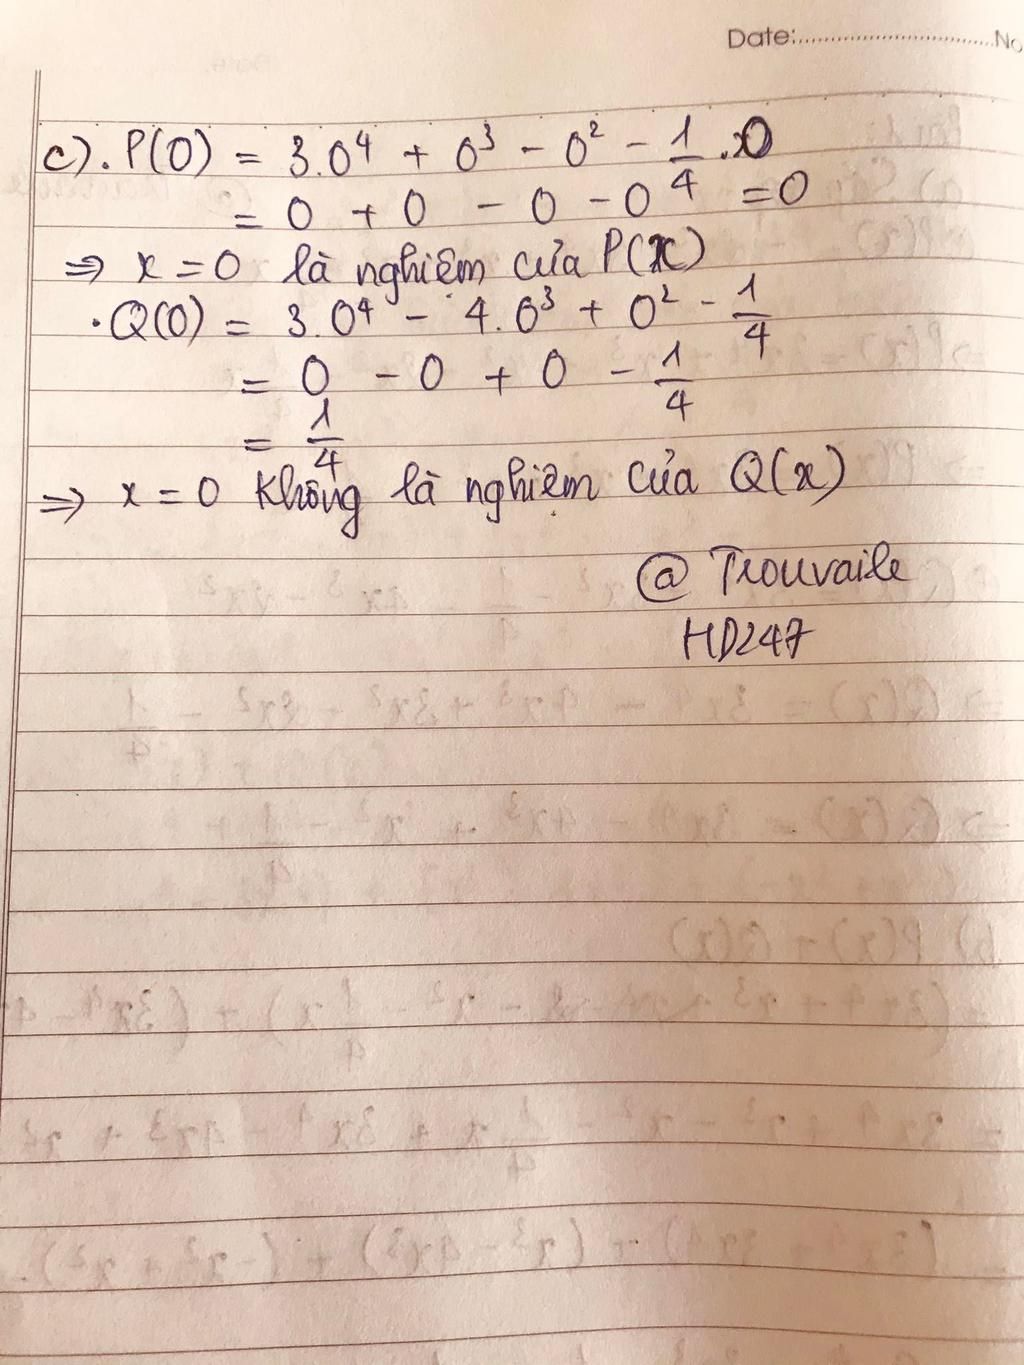 Date:..............................No
c). P(0) = 3.0⁴ + 0³ - 0² - 1/4 .0
= 0 + 0 - 0 - 0 = 0
⇒ x = 0 là nghiệm của P(x)
. Q(0) = 3.0⁴ - 4.0³ + 0² - 1/4
= 0 - 0 + 0 - 1/4
= 1/4
⇒ x = 0 Không là nghiệm của Q(x)
@ Trouvaile
HD247